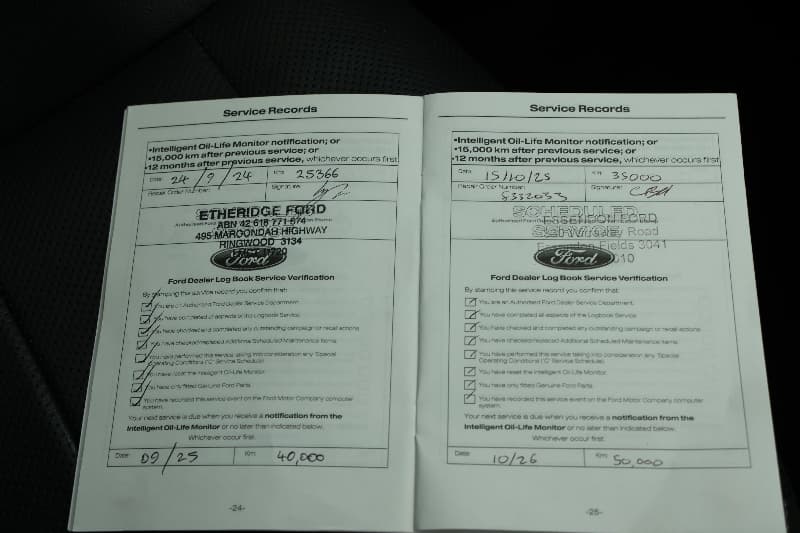 Service Records
•Intelligent Oil-Life Monitor notification; or
•15,000 km after previous service; or
•12 months after previous service, whichever occurs first
Date: 24/9/24 Km: 25366
Repair Order Number: Signature:
ETHERIDGE FORD
ABN 42 618 771 674
495 MAROONDAH HIGHWAY
RINGWOOD 3134
Ford
Ford Dealer Log Book Service Verification
By stamping this service record you confirm that:
You are an Authorised Ford Dealer Service Department.
You have completed all aspects of the Logbook Service.
You have checked and completed any outstanding campaign or recall actions.
You have checked/replaced Additional Scheduled Maintenance Items.
You have performed this service taking into consideration any 'Special
Operating Conditions ('C' Service Schedule).
You have reset the Intelligent Oil-Life Monitor.
You have only fitted Genuine Ford Parts.
You have recorded this service event on the Ford Motor Company computer
system.
Your next service is due when you receive a notification from the
Intelligent Oil-Life Monitor or no later than indicated below.
Whichever occur first.
Date: 09/25 Km: 40,000
-24-
Service Records
•Intelligent Oil-Life Monitor notification; or
•15,000 km after previous service; or
•12 months after previous service, whichever occurs first
Date: 15/10/25 Km: 35000
Repair Order Number: Signature:
SCHEDULED
ESSENDON FORD
SERVICE Road
Essendon Fields 3041
Ford
Ford Dealer Log Book Service Verification
By stamping this service record you confirm that:
You are an Authorised Ford Dealer Service Department.
You have completed all aspects of the Logbook Service.
You have checked and completed any outstanding campaign or recall actions.
You have checked/replaced Additional Scheduled Maintenance Items.
You have performed this service taking into consideration any 'Special
Operating Conditions ('C' Service Schedule).
You have reset the Intelligent Oil-Life Monitor.
You have only fitted Genuine Ford Parts.
You have recorded this service event on the Ford Motor Company computer
system.
Your next service is due when you receive a notification from the
Intelligent Oil-Life Monitor or no later than indicated below.
Whichever occur first.
Date: 10/26 Km: 50,000
-25-